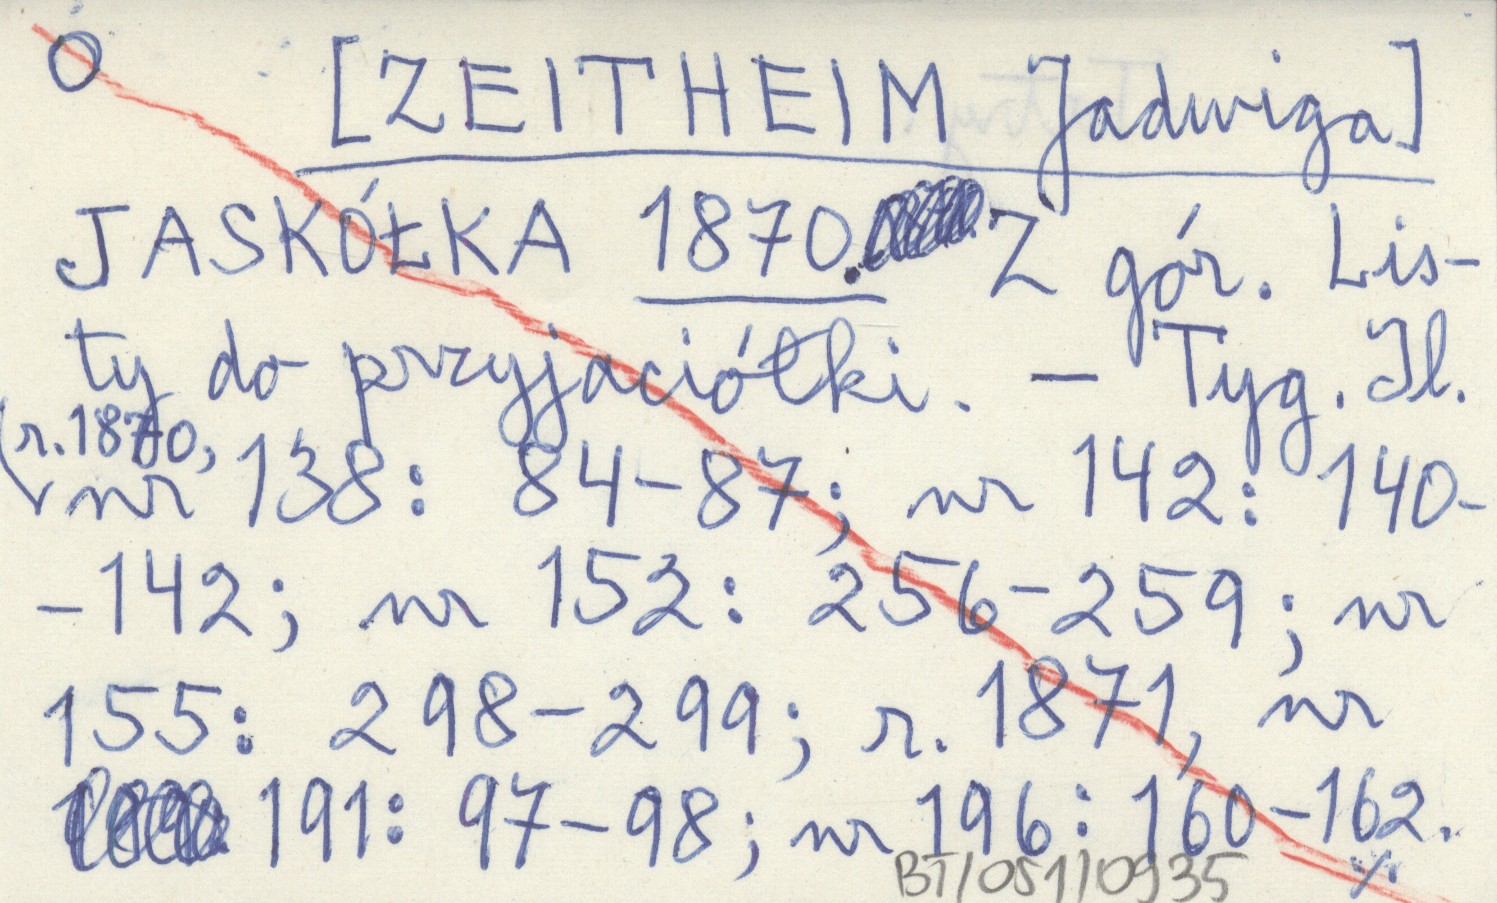 O [ZEITHEIM Jadwiga]
JASKÓŁKA 1870. Z gór. Lis-
ty do przyjaciółki. — Tyg. Il.
(r. 1870,
nr 138: 84-87; nr 142: 140-
-142; nr 152: 256-259; nr
155: 298-299; r. 1871, nr
191: 97-98; nr 196: 160-162.
BT/051/0935 ./.